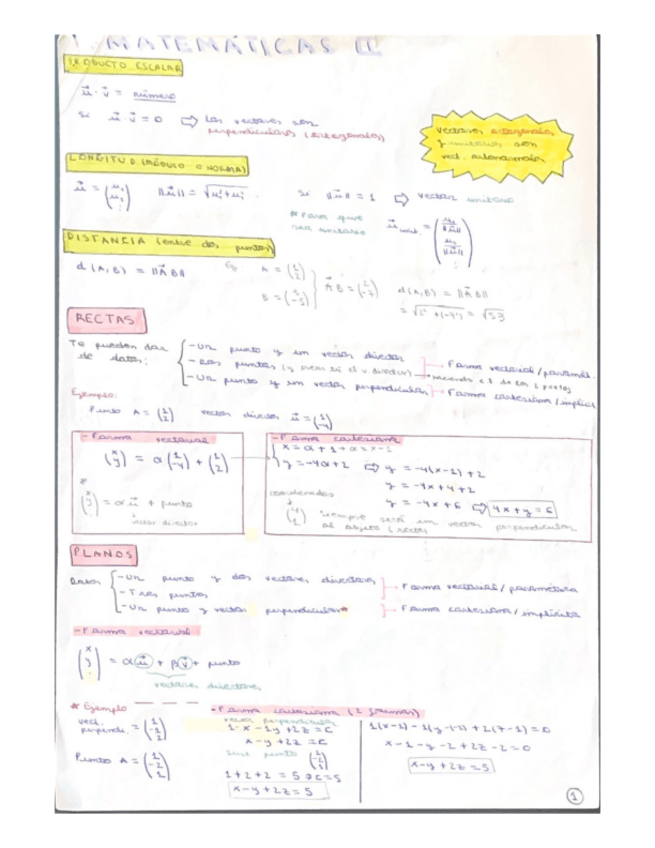 1. MATEMÁTICAS II
PRODUCTO ESCALAR
u⃗ · v⃗ = número
Si u⃗ · v⃗ = 0 ⇨ Los vectores son perpendiculares (ortogonales)
vectores ortogonales y unitarios son vect. ortonormales
LONGITUD (MÓDULO O NORMA)
u⃗ = (u₁ u₂ ⋮) ||u⃗|| = √u₁²+u₂² . Si ||u⃗|| = 1 ⇨ vector unitario
* Para que sea unitario u⃗ unit. = (u₁/||u⃗|| u₂/||u⃗|| ⋮)
DISTANCIA (entre dos puntos)
d(A,B) = ||A⃗B|| Ej A = (1 2) B = (3 -5) } A⃗B = (2 -7) d(A,B) = ||A⃗B||
= √2² + (-7)² = √53
RECTAS
Te pueden dar de datos:
- Un punto y un vector director
- Dos puntos
- Un punto y un vector perpendicular
→ Forma vectorial/paramét.
→ haciendo el de los 2 puntos
→ Forma cartesiana/implícit
Ejemplo:
Punto A = (1 2) vector director u⃗ = (1 -4)
- Forma vectorial
(x y) = α(1 -4) + (1 2)
(x y) = αu⃗ + punto
vector director
- Forma cartesiana
x = α + 1 → α = x - 1
y = -4α + 2 ⇨ y = -4(x-1) + 2
y = -4x + 4 + 2
y = -4x + 6 ⇨ 4x + y = 6
coordenadas
(4 1) siempre será un vector perpendicular al objeto (recta)
PLANOS
Datos
- Un punto y dos vectores directores
- Tres puntos
- Un punto y vector perpendicular*
→ Forma vectorial/paramétrica
→ Forma cartesiana/implícita
- Forma vectorial
(x y z) = αu⃗ + βv⃗ + punto
vectores directores
* Ejemplo
vect. perpendi. = (1 -1 2)
Punto A = (1 -2 1)
- Forma cartesiana (2 formas)
vector perpendicular
1·x - 1y + 2z = C
x - y + 2z = C
Sust. punto (1 -2 1)
1 + 2 + 2 = 5 C = 5
x - y + 2z = 5
1(x-1) - 1(y-(-2)) + 2(z-1) = 0
x - 1 - y - 2 + 2z - 2 = 0
x - y + 2z = 5
1